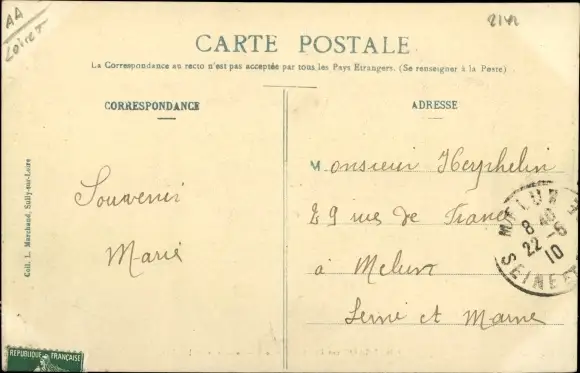 AA
LOIRET
2142
CARTE POSTALE
La Correspondance au recto n'est pas acceptée par tous les Pays Etrangers. (Se renseigner à la Poste)
CORRESPONDANCE
ADRESSE
Souvenir
Marie
Monsieur Herphelin
29 rue de France
à Melun
Seine et Marne
MELUN
8 40
22-6
10
SEINE ET
Coll. L. Marchand, Sully-sur-Loire
REPUBLIQUE FRANÇAISE